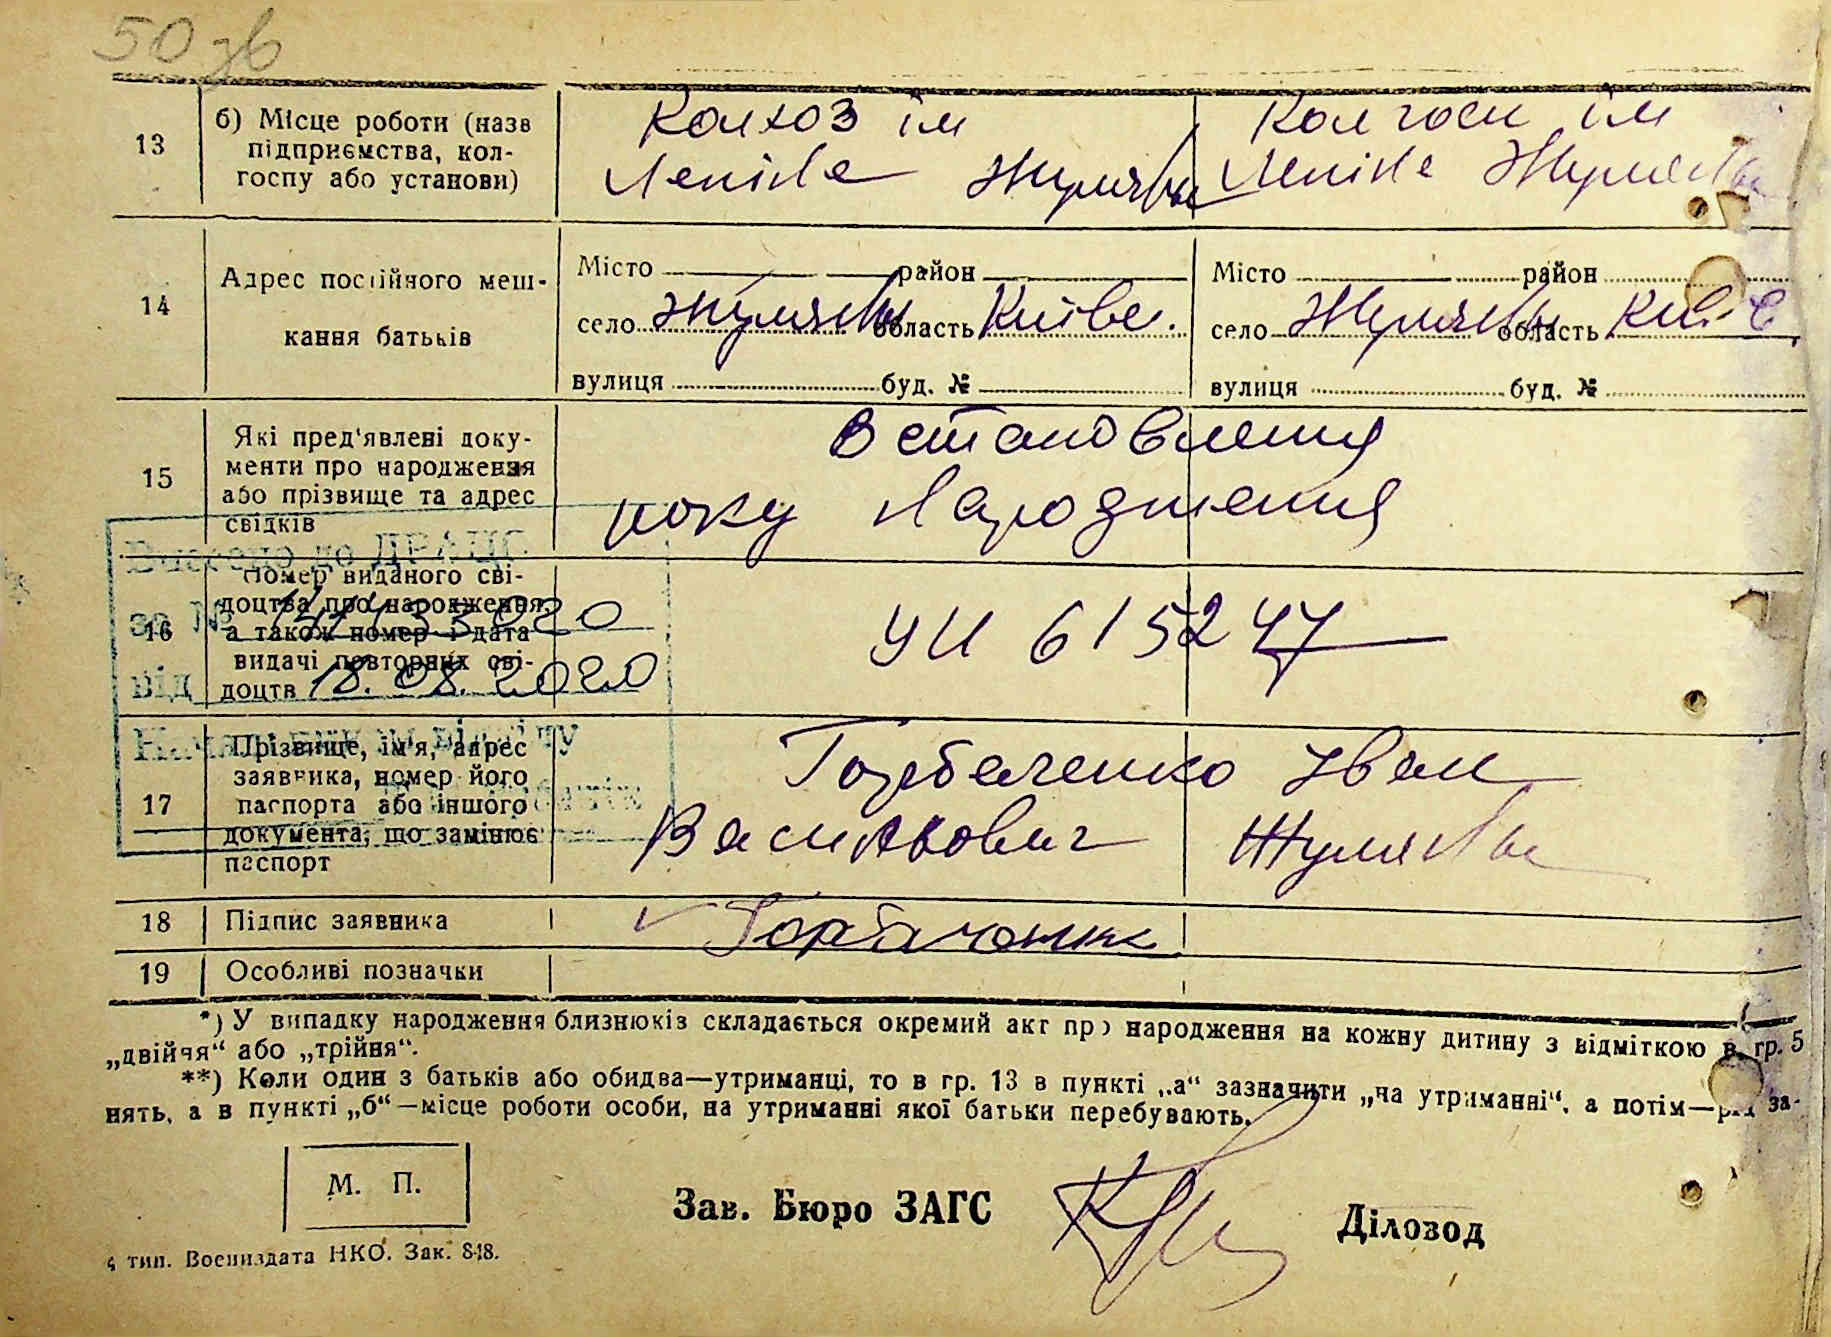 50 зв
13
б) Місце роботи (назв
підприємства, кол-
госпу або установи)
Колхоз ім
Леніна Жуляны
Колгосп ім
Леніна Жуляны
14
Адрес постійного меш-
кання батьків
Місто район
село Жуляны область Київс.
вулиця буд. №
Місто район
село Жуляны область Київс
вулиця буд. №
15
Які пред'явлені доку-
менти про народження
або прізвище та адрес
свідків
Встановлення
року народження
16
Номер виданого сві-
доцтва про народження,
а також номер і дата
видачі повторних сві-
доцтв
УИ 615247
до ДРАЦС
за №
від 18.08.2020
17
Прізвище, ім'я, адрес
заявника, номер його
паспорта або іншого
документа, що замінює
паспорт
Горбаченко Іван
Васильович Жуляны
18
Підпис заявника
Горбаченко
19
Особливі позначки
*) У випадку народження близнюків складається окремий акт про народження на кожну дитину з відміткою в гр. 5
„двійня“ або „трійня“.
**) Коли один з батьків або обидва—утриманці, то в гр. 13 в пункті „а“ зазначити „на утриманні“, а потім—рід за-
нять, а в пункті „б“—місце роботи особи, на утриманні якої батьки перебувають.
М. П.
Зав. Бюро ЗАГС
Діловод
4 тип. Воениздата НКО. Зак. 848.